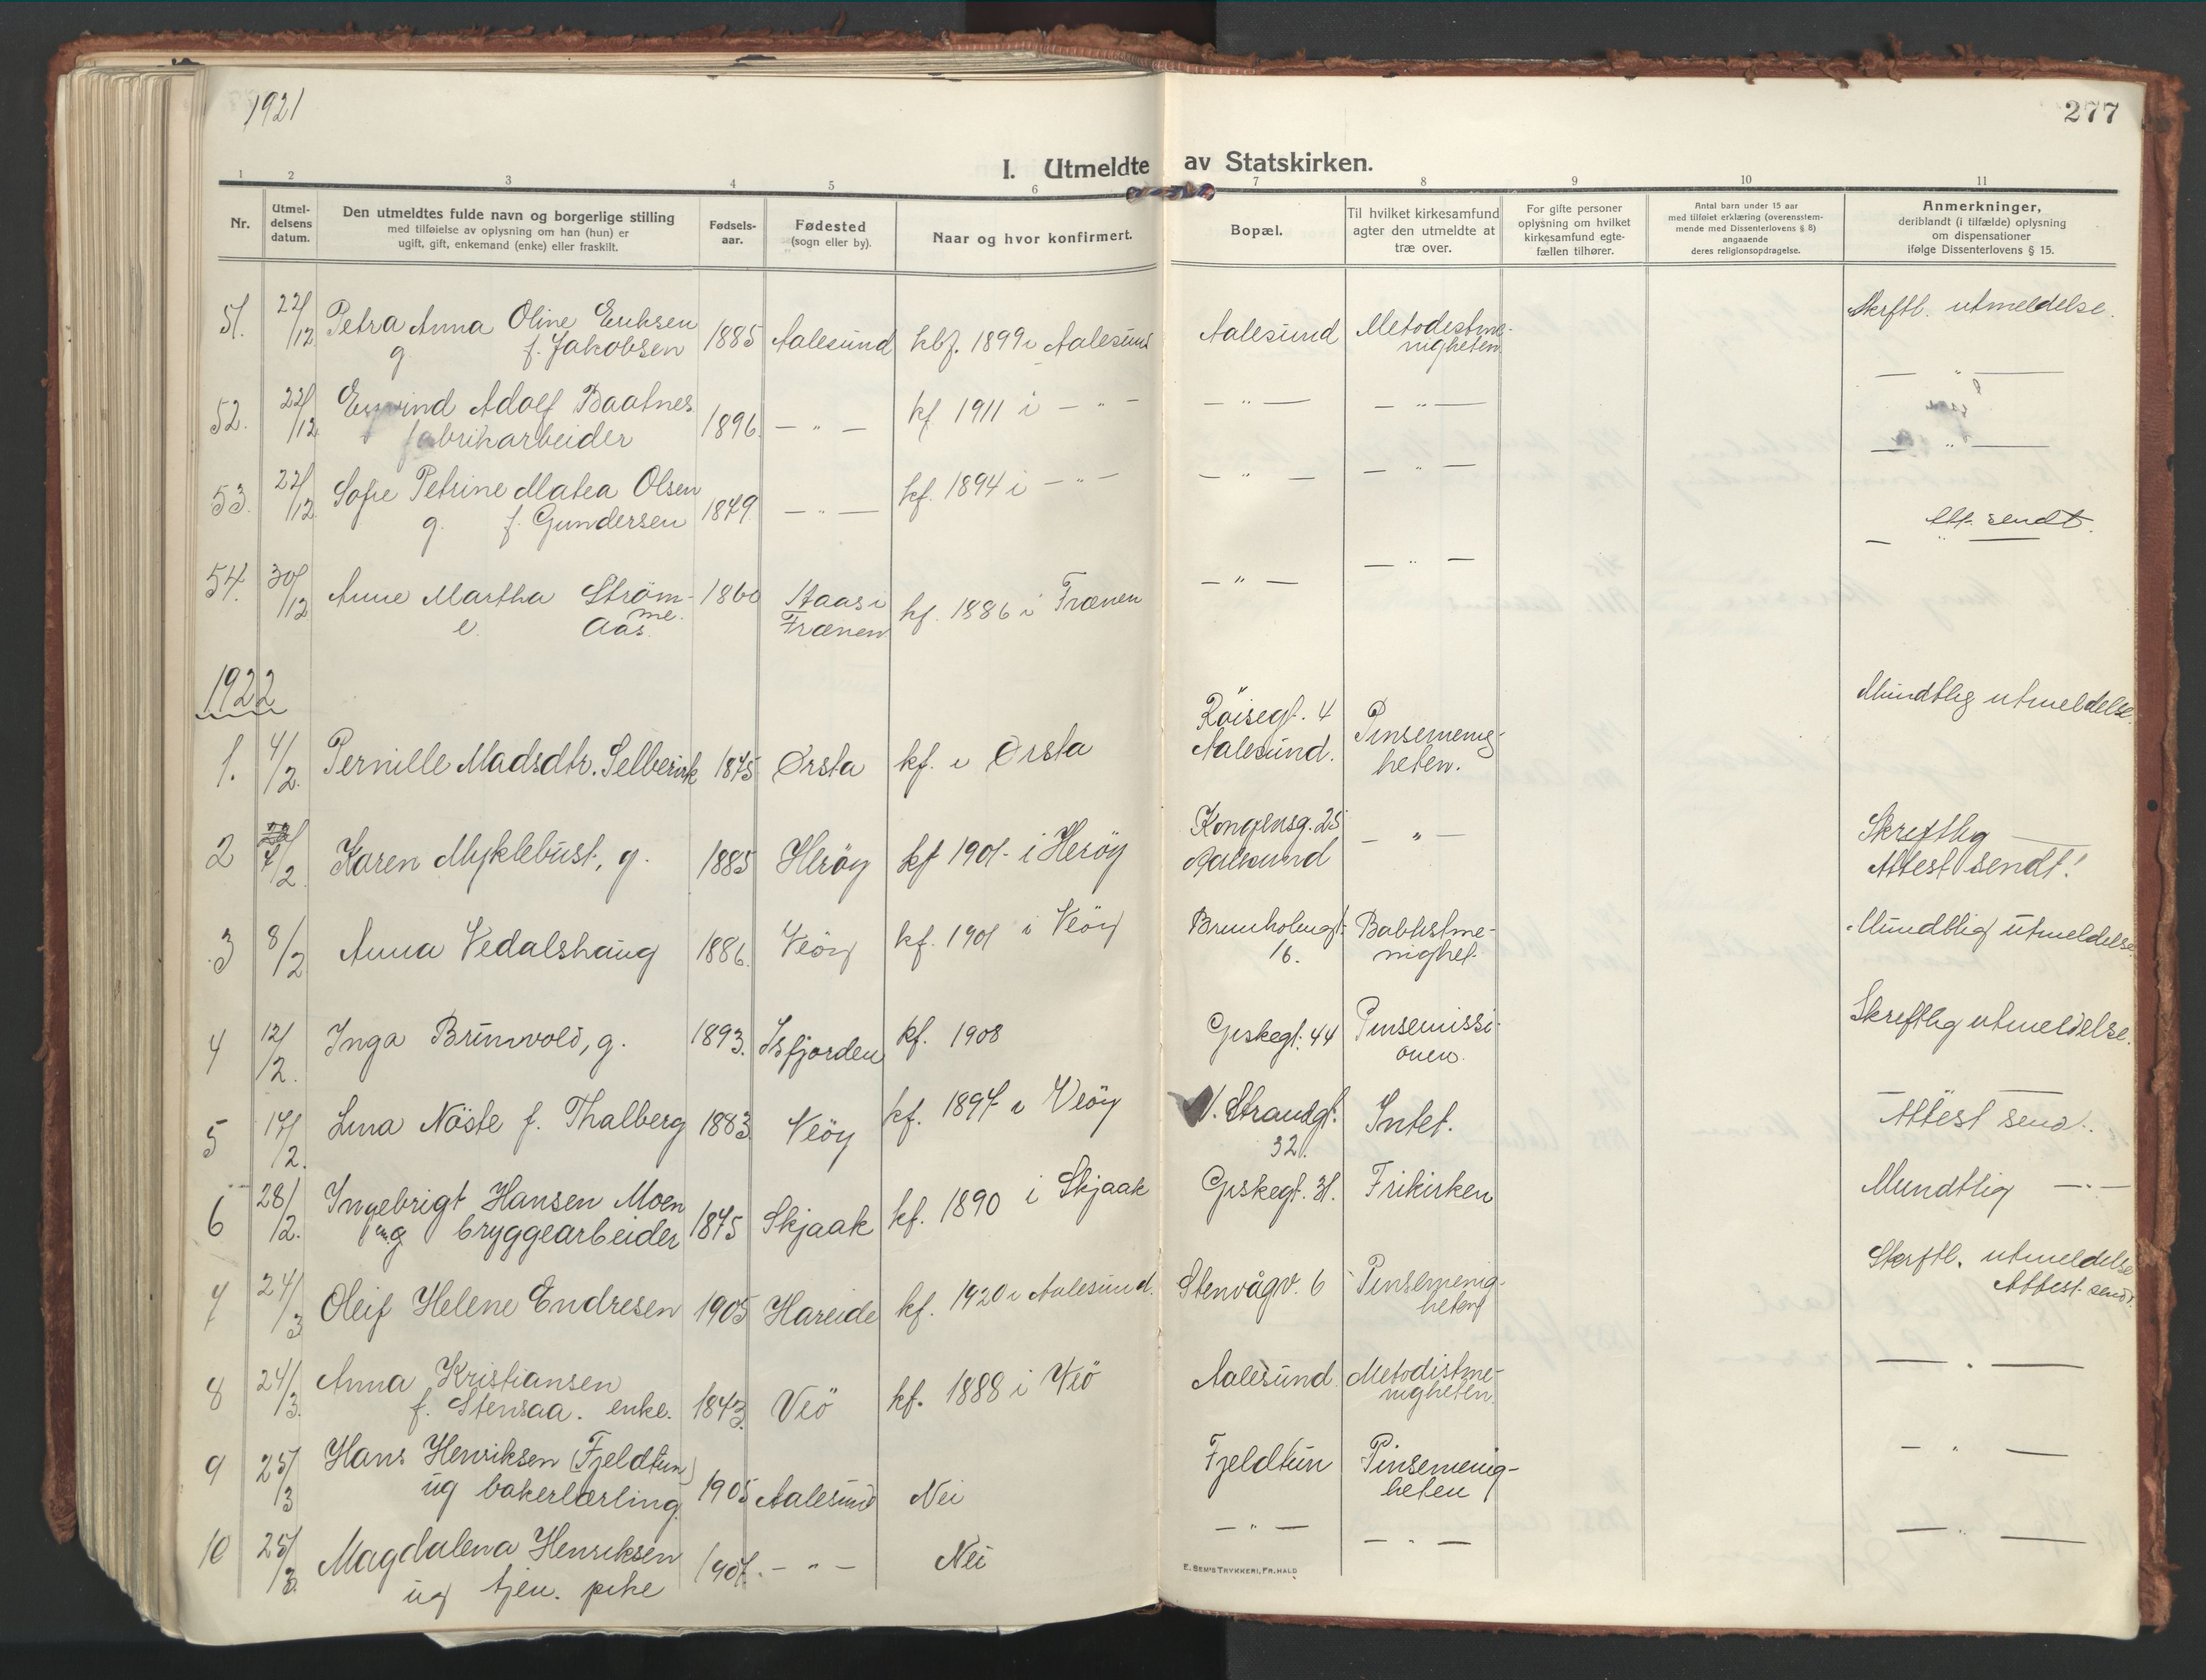 1921
277
I. Utmeldte av Statskirken.
1 2 3 4 5 6 7 8 9 10 11
Nr.
Utmel-
delsens
datum.
Den utmeldtes fulde navn og borgerlige stilling
med tilføielse av oplysning om han (hun) er
ugift, gift, enkemand (enke) eller fraskilt.
Fødsels-
aar.
Fødested
(sogn eller by).
Naar og hvor konfirmert.
Bopæl.
Til hvilket kirkesamfund
agter den utmeldte at
træ over.
For gifte personer
oplysning om hvilket
kirkesamfund egte-
fællen tilhører.
Antal barn under 15 aar
med tilføiet erklæring (overensstem-
mende med Dissenterlovens § 8)
angaaende
deres religionsopdragelse.
Anmerkninger,
deriblandt (i tilfælde) oplysning
om dispensationer
ifølge Dissenterlovens § 15.
51. 22/12 Petra Anna Oline Eriksen 1885 Aalesund kbf. 1899 i Aalesund Aalesund Metodistme- Skriftl. utmeldelse.
g. f. Jakobsen nigheten
52. 22/12 Adolf Baatnes 1896. — " — kf. 1911 i — " — — " — — " — — " —
fabrikarbeider
53. 22/12 Sofie Petrine Matea Olsen 1879 — " — kf. 1894 i — " — — " — — " — — " —
g. f. Gundersen
Att. sendt.
54. 30/12 Anne Martha Ström- 1860 Aas i kf. 1886 i Frænen — " — — " — — " —
me.
e. Aas. Frænen
1922
1. 4/2. Pernille Madsdtr. Selbervik 1875 Ørsta kf. i Ørsta Röisegt. 4 Pinsemenig- Mundtlig utmeldelse.
Aalesund. heten.
2 7/2. Karen Myklebust, g. 1885 Heröy kf 1901 i Heröy Kongensg. 25 — " — Skriftlig —
Aalesund Attest sendt!
3 8/2 Anna Vedalshaug 1886. Veöy kf. 1901 i Veöy Brunholmgt. Babtistme- Mundtlig utmeldelse.
16. nighet.
4 12/2. Inga Brunvold, g. 1893. Isfjorden kf. 1908 Giskegt. 44 Pinsemissi- Skriftlig utmeldelse.
onen.
5 17/2. Lina Nöste f. Thalberg 1883 Veöy kf. 1897 i Veöy N. Strandgt. Intet. Attest send.
32.
6 28/2. Ingebrigt Hansen Moen 1875 Skjaak kf. 1890 i Skjaak Giskegt. 31. Frikirken Mundtlig — " —
bryggearbeider
7 24/3 Oleif Helene Endresen 1905 Hareide kf. 1920 i Aalesund. Stenvågv. 6 Pinsemenig- Skriftl. utmeldelse
heten Attest. sendt.
8 24/3. Anna Kristiansen 1873. Veö kf. 1888 i Veö Aalesund Metodistme- — " —
f. Stensaa. enke. nigheten.
9 25/3 Hans Henriksen (Fjeldtun) 1905 Aalesund Nei Fjeldtun Pinsemenig- — " —
ug bakerlærling. heten
10 25/3. Magdalena Henriksen 1907. — " — Nei — " — — " — — " —
ug tjen. pike
E. SEM'S TRYKKERI, FR.HALD